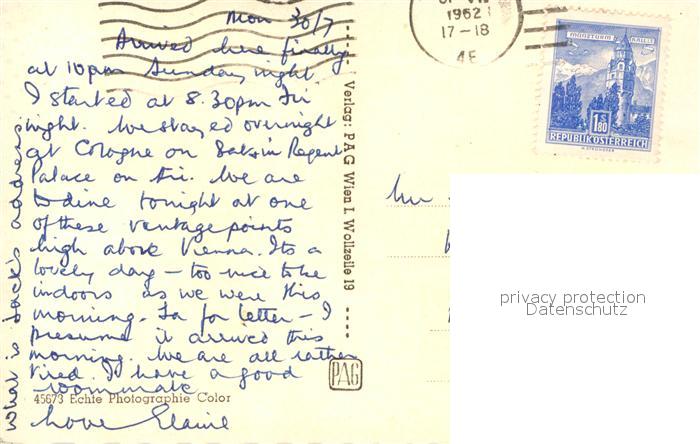 Mon 30/7
Arrived here finally
at 10pm Sunday night.
I started at 8.30pm Fri
night. We stayed overnight
at Cologne on Sat & in Regent
Palace on Fri. We are
to dine tonight at one
of these vantage points
high above Vienna. Its a
lovely day – too nice to be
indoors as we were this
morning. Ta for letter – I
presume it arrived this
morning. We are all rather
tired. I have a good
roommate
Love Elaine
What is Jack's address
45673 Echte Photographie Color
Verlag: PAG Wien I. Wollzeile 19
PAG
1962
17-18
MÜNZTURM HALL
1.80
REPUBLIK ÖSTERREICH
Mr
privacy protection
Datenschutz